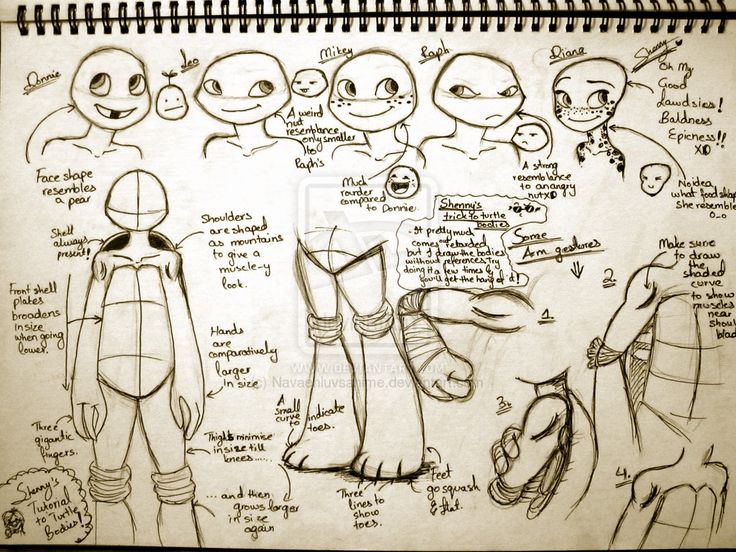 Donnie
Leo
Mikey
Raph
Diana
Shenny
Oh My
Good
Lawdsies!
Baldness
Epicness!!
XD
A weird
nut
resemblance
only smaller
to
Raph's
Face shape
resembles
a pear
Mud
rounder
compared
to Donnie.
A strong
resemblance
to an angry
nut XD
No idea
what food shape
she resembles
O_o
Shenny's
trick to turtle
bodies
It pretty much
comes out retarded,
but I draw the bodies
without references. Try
doing it a few times &
you'll get the hang of it!
Some
Arm gestures
Make sure
to draw
the
shaded
curve
to show
muscles
near
shoul
blad
Shell
always
present!
Shoulders
are shaped
as mountains
to give a
muscle-y
look.
Front shell
plates
broadens
in size
when going
lower.
Hands
are
comparatively
larger
in size.
Three
gigantic
fingers.
Thighs minimise
in size till
knees......
... and then
grows larger
in size
again
A
small
curve to
indicate
toes.
Three
lines to
show
toes.
Feet
go squash
& flat.
1.
2.
3.
4.
Shenny's
Tutorial
to Turtle
Bodies!
WWW.DEVIANTART.COM